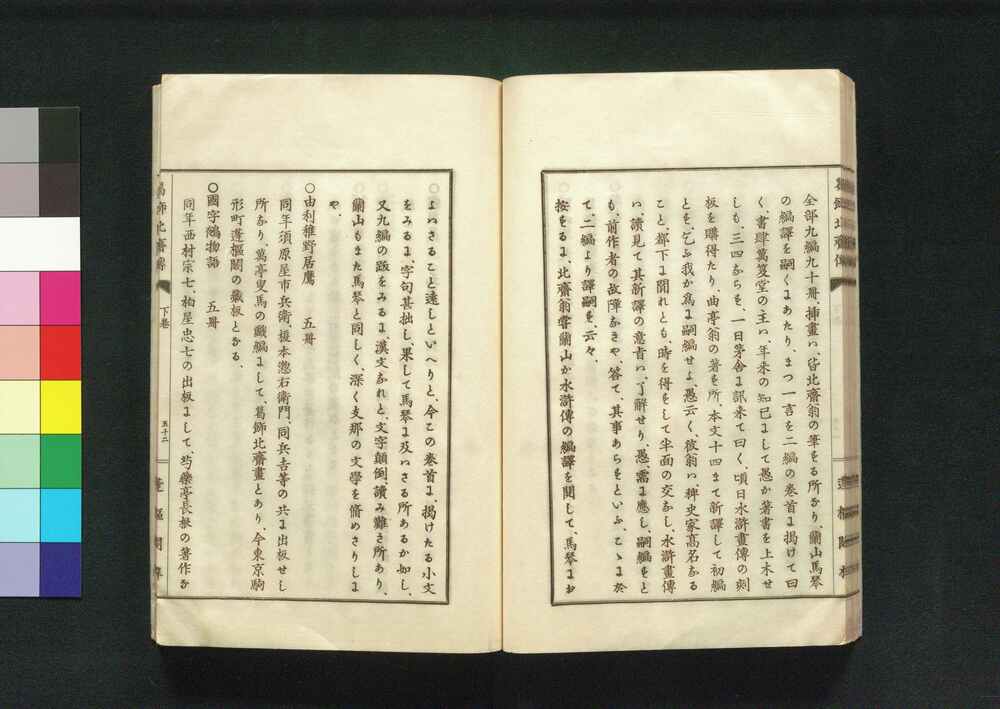 全部九編九十冊、挿畫ハ、皆北齋翁の筆せる所なり、蘭山馬琴
の編譯を嗣くにあたり、まつ一言を二編の巻首に掲けて曰
く、書肆萬笈堂の主ハ、年来の知已にして愚か著書を上木せ
しも、三四ならを、一日茅舎に訊来て曰く、頃日水滸畫傳の刻
板を購得たり、曲亭翁の著を所、本文十四まて新譯して初編
とを、乞ふ我か為に嗣編せよ、愚云く、彼翁ハ、稗史家高名なる
こと、都下に聞れとも、時を得をして半面の交なし、水滸畫傳
ハ、讀見て其新譯の意旨ハ、了解せり、愚、需に應し、嗣編をと
も、前作者の故障なきや、答て、其事あらをといふ、こゝに於
て、二編より譯嗣を、云々、
按をるに、北齋翁嘗蘭山か水滸傳の編譯を関して、馬琴にお
よハさること遠しといへりと、今この巻首に、掲けたる小文
をみるに、字句甚拙し、果して馬琴に及ハさる所あるか如し、
又九編の跋をみるに漢文なれと、文字顛倒、讀み難き所あり、
蘭山もまた馬琴と同しく、深く支那の文學を脩めさりしに
や、
〇由利稚野居鷹　五冊
同年須原屋市兵衛、榎本惣右衛門、同兵吉等の共に出板せし
所なり、萬亭叟馬の戯編にして、葛飾北齋畫とあり、今東京駒
形町蓬樞閣の蔵板となる、
〇國字鵺物語　五冊
同年西村宗七、柏屋忠七の出板にして、芍藥亭長根の著作な
葛飾北齋傳
下巻
五十二